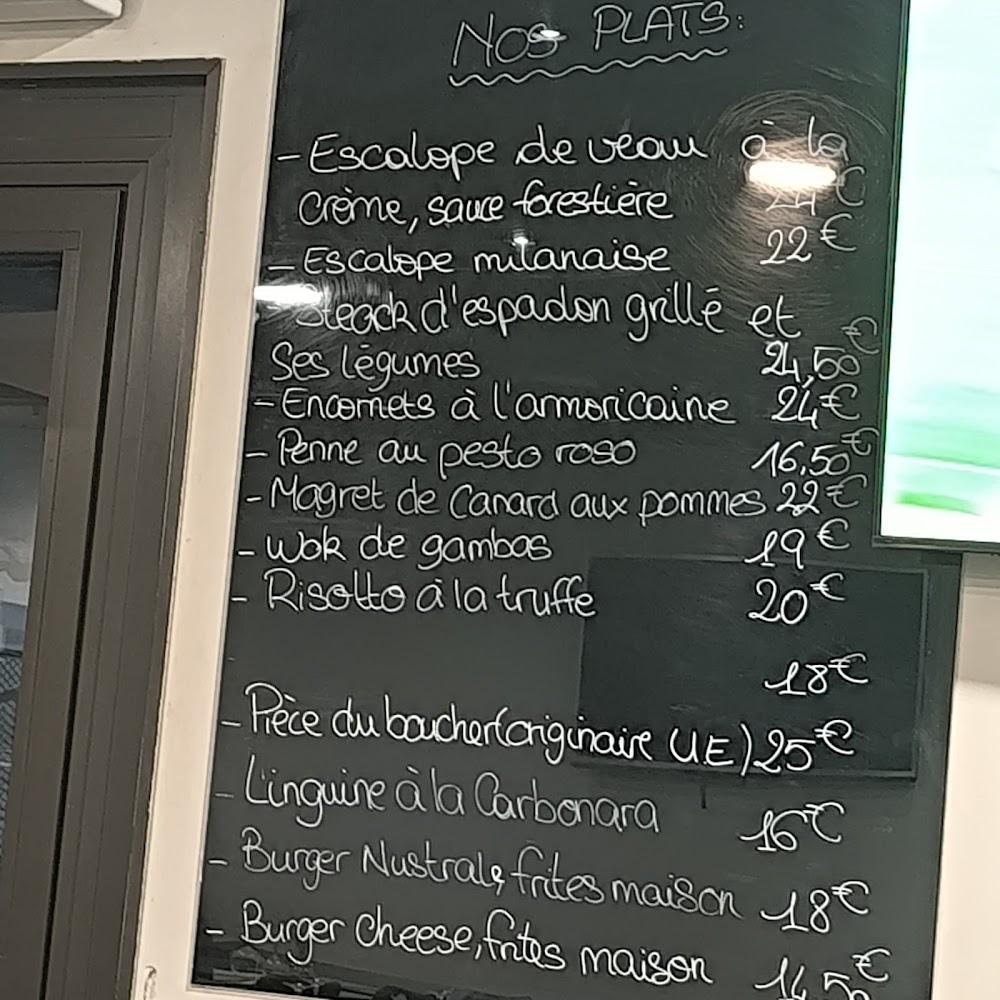 NOS PLATS:
- Escalope de veau à la
crème, sauce forestière 24€
- Escalope milanaise 22€
- Steack d'espadon grillé et
Ses légumes 24,50€
- Encornets à l'armoricaine 24€
- Penne au pesto roso 16,50€
- Magret de Canard aux pommes 22€
- Wok de gambas 19€
- Risotto à la truffe 20€
18€
- Pièce du boucher (originaire UE) 25€
- Linguine à la Carbonara 16€
- Burger Nustrale, frites maison 18€
- Burger Cheese, frites maison 14,50€